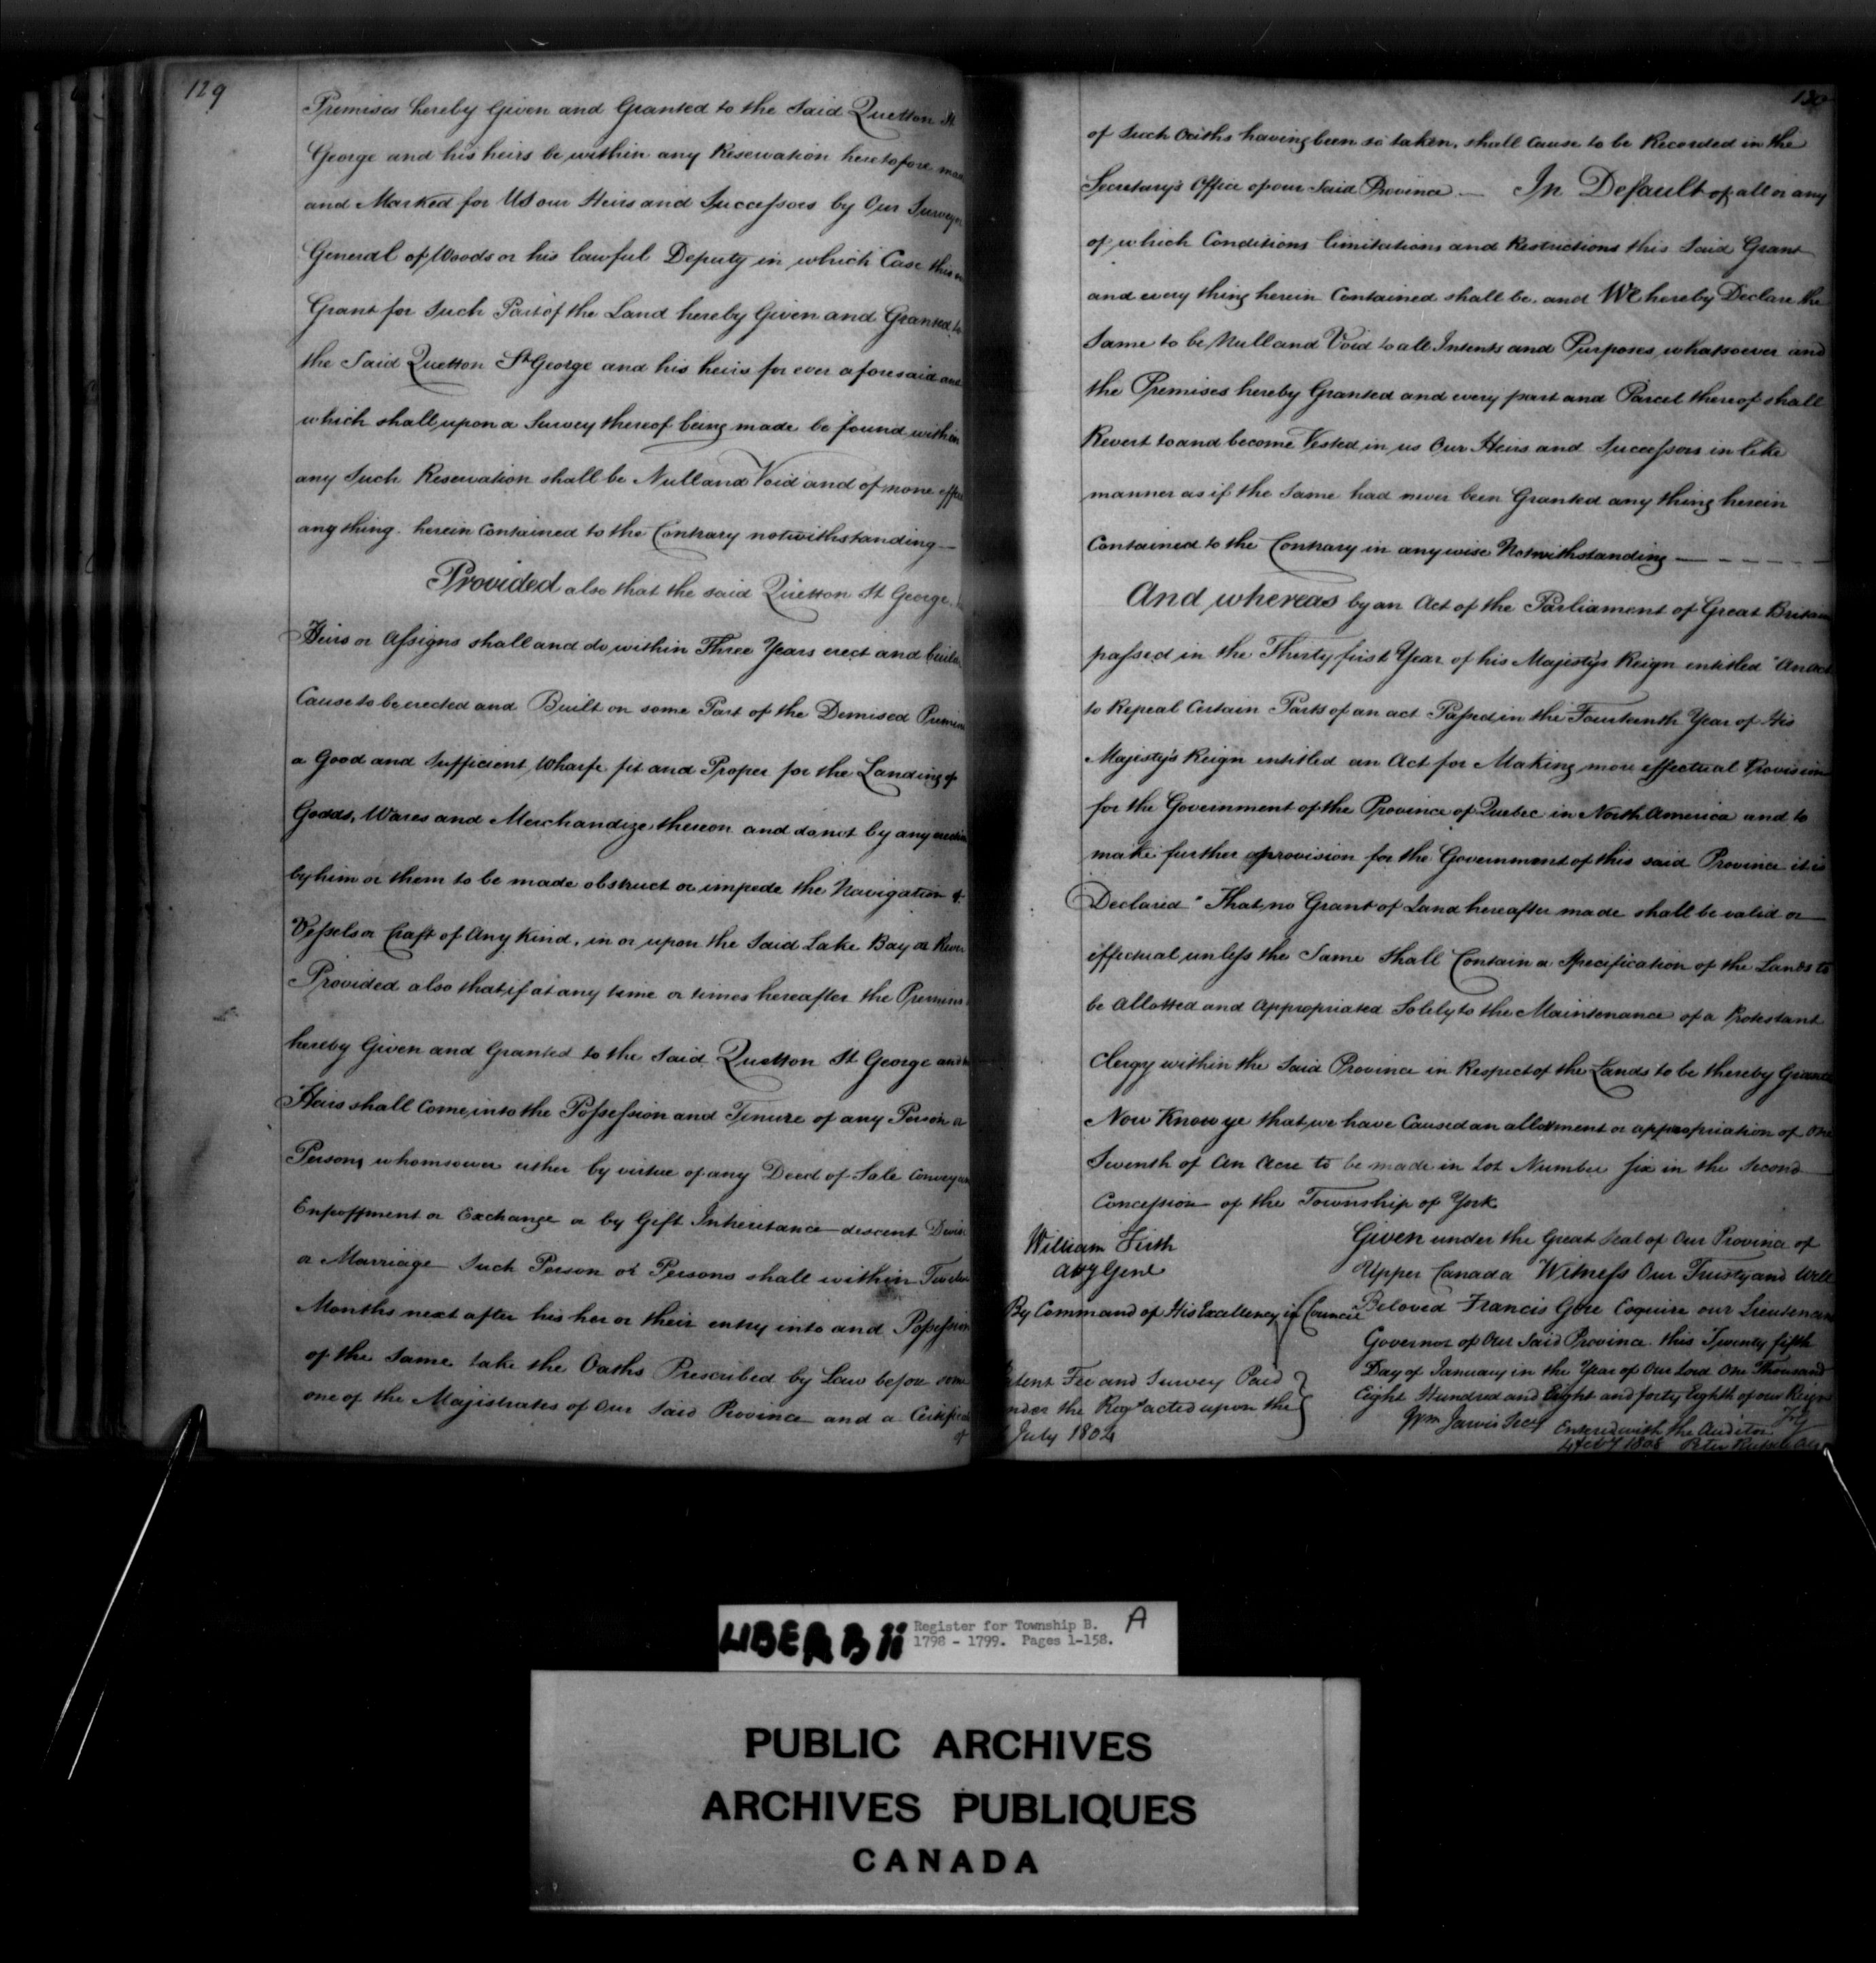 129
Premises hereby Given and Granted to the Said Quetton St
George and his heirs be within any Reservation heretofore
and Marked for Us our Heirs and Successors by Our
General of Woods or his lawful Deputy in which Case this
Grant for Such Part of the Land hereby Given and Granted to
the Said Quetton St George and his heirs for ever aforesaid and
which shall upon a Survey thereof being made be found within
any Such Reservation shall be Null and Void and of none
any thing herein Contained to the Contrary notwithstanding —
Provided also that the said Quetton St George
Heirs or Assigns shall and do within Three Years erect and
Cause to be erected and Built on some Part of the Demised
a Good and Sufficient Wharfe fit and Proper for the Landing of
Goods, Wares and Merchandize thereon and do not by any
by him or them to be made obstruct or impede the Navigation of
Vessels or Craft of Any Kind, in or upon the Said Lake Bay or River
Provided also that if at any time or times hereafter the
hereby Given and Granted to the Said Quetton St George and
Heirs shall Come into the Possession and Tenure of any Person or
Persons whomsoever either by virtue of any Deed of Sale
Enfeoffment or Exchange or by Gift Inheritance descent
or Marriage Such Person or Persons shall within
Months next after his her or their entry into and
of the Same take the Oaths Prescribed by Law before some
one of the Magistrates of Our Said Province and a
of
130
of Such Oaths having been so taken, shall Cause to be Recorded in the
Secretary's Office of our Said Province — In Default of all or any
of which Conditions limitations and Restrictions this Said Grant
and every thing herein Contained shall be, and We hereby Declare the
Same to be Null and Void to all Intents and Purposes whatsoever and
the Premises hereby Granted and every part and Parcel thereof shall
Revert to and become Vested in us Our Heirs and Successors in like
manner as if the Same had never been Granted any thing herein
Contained to the Contrary in any wise Notwithstanding —
And whereas by an Act of the Parliament of Great Britain
passed in the Thirty first Year of his Majesty's Reign entitled "An act
to Repeal Certain Parts of an act Passed in the Fourteenth Year of His
Majesty's Reign entitled an Act for Making more effectual Provision
for the Government of the Province of Quebec in North America and to
make further provision for the Government of this said Province it is
Declared "That no Grant of Land hereafter made shall be valid or
effectual unless the Same Shall Contain a Specification of the Lands to
be allotted and appropriated Solely to the Maintenance of a Protestant
Clergy within the Said Province in Respect of the Lands to be thereby
Now Know ye that we have Caused an allotment or appropriation of One
Seventh of An Acre to be made in Lot Number Six in the Second
Concession of the Township of York
William Firth
Atty Genl
By Command of His Excellency in Council
Given under the Great Seal of Our Province of
Upper Canada Witness Our Trusty and Well
Beloved Francis Gore Esquire our
Governor of Our Said Province this Twenty fifth
Day of January in the Year of Our Lord One Thousand
Eight Hundred and Eight and forty Eighth of our Reign
Fee and Survey Paid
the Regs acted upon the
July 1804
Wm Jarvis Secy
FG
Entered with the Auditor
4 Feby 1808 Peter Russell
LIBER B ii
Register for Township B.
1798 - 1799. Pages 1-158.
A
PUBLIC ARCHIVES
ARCHIVES PUBLIQUES
CANADA